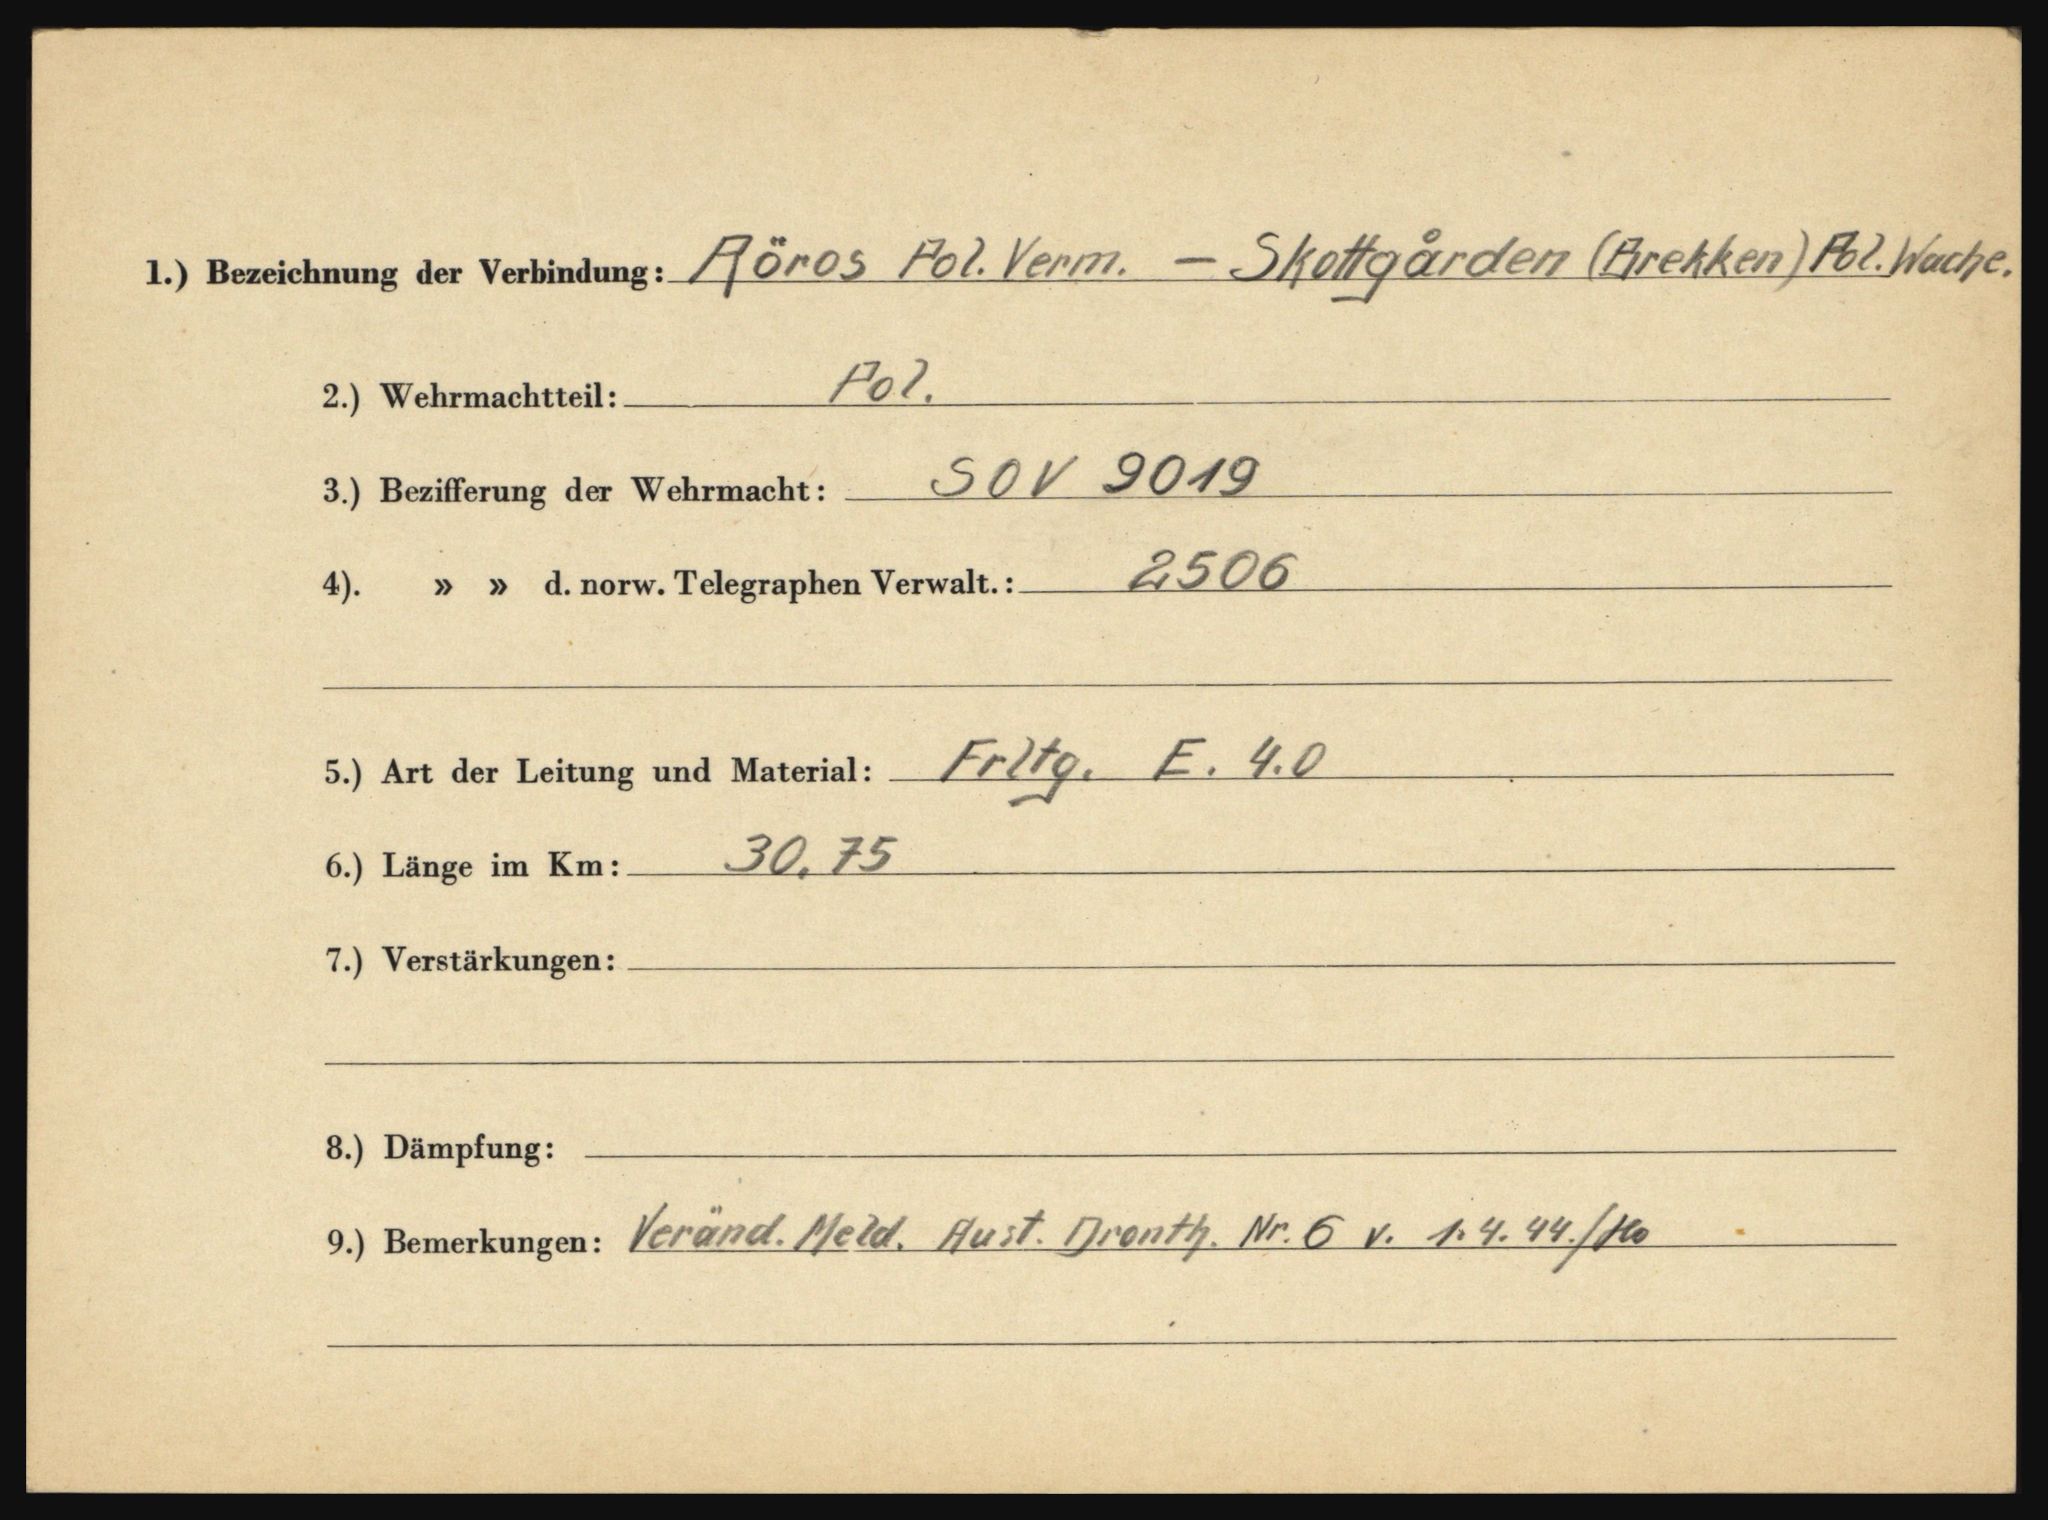 1.) Bezeichnung der Verbindung: Röros Pol. Verm. – Skottgården (Brekken) Pol. Wache.
2.) Wehrmachtteil: Pol.
3.) Bezifferung der Wehrmacht: SOV 9019
4). » » d. norw. Telegraphen Verwalt.: 2506
5.) Art der Leitung und Material: Frltg. E. 4.0
6.) Länge im Km: 30.75
7.) Verstärkungen:
8.) Dämpfung:
9.) Bemerkungen: Veränd. Meld. Aust. Dronth. Nr. 6 v. 1.4.44./